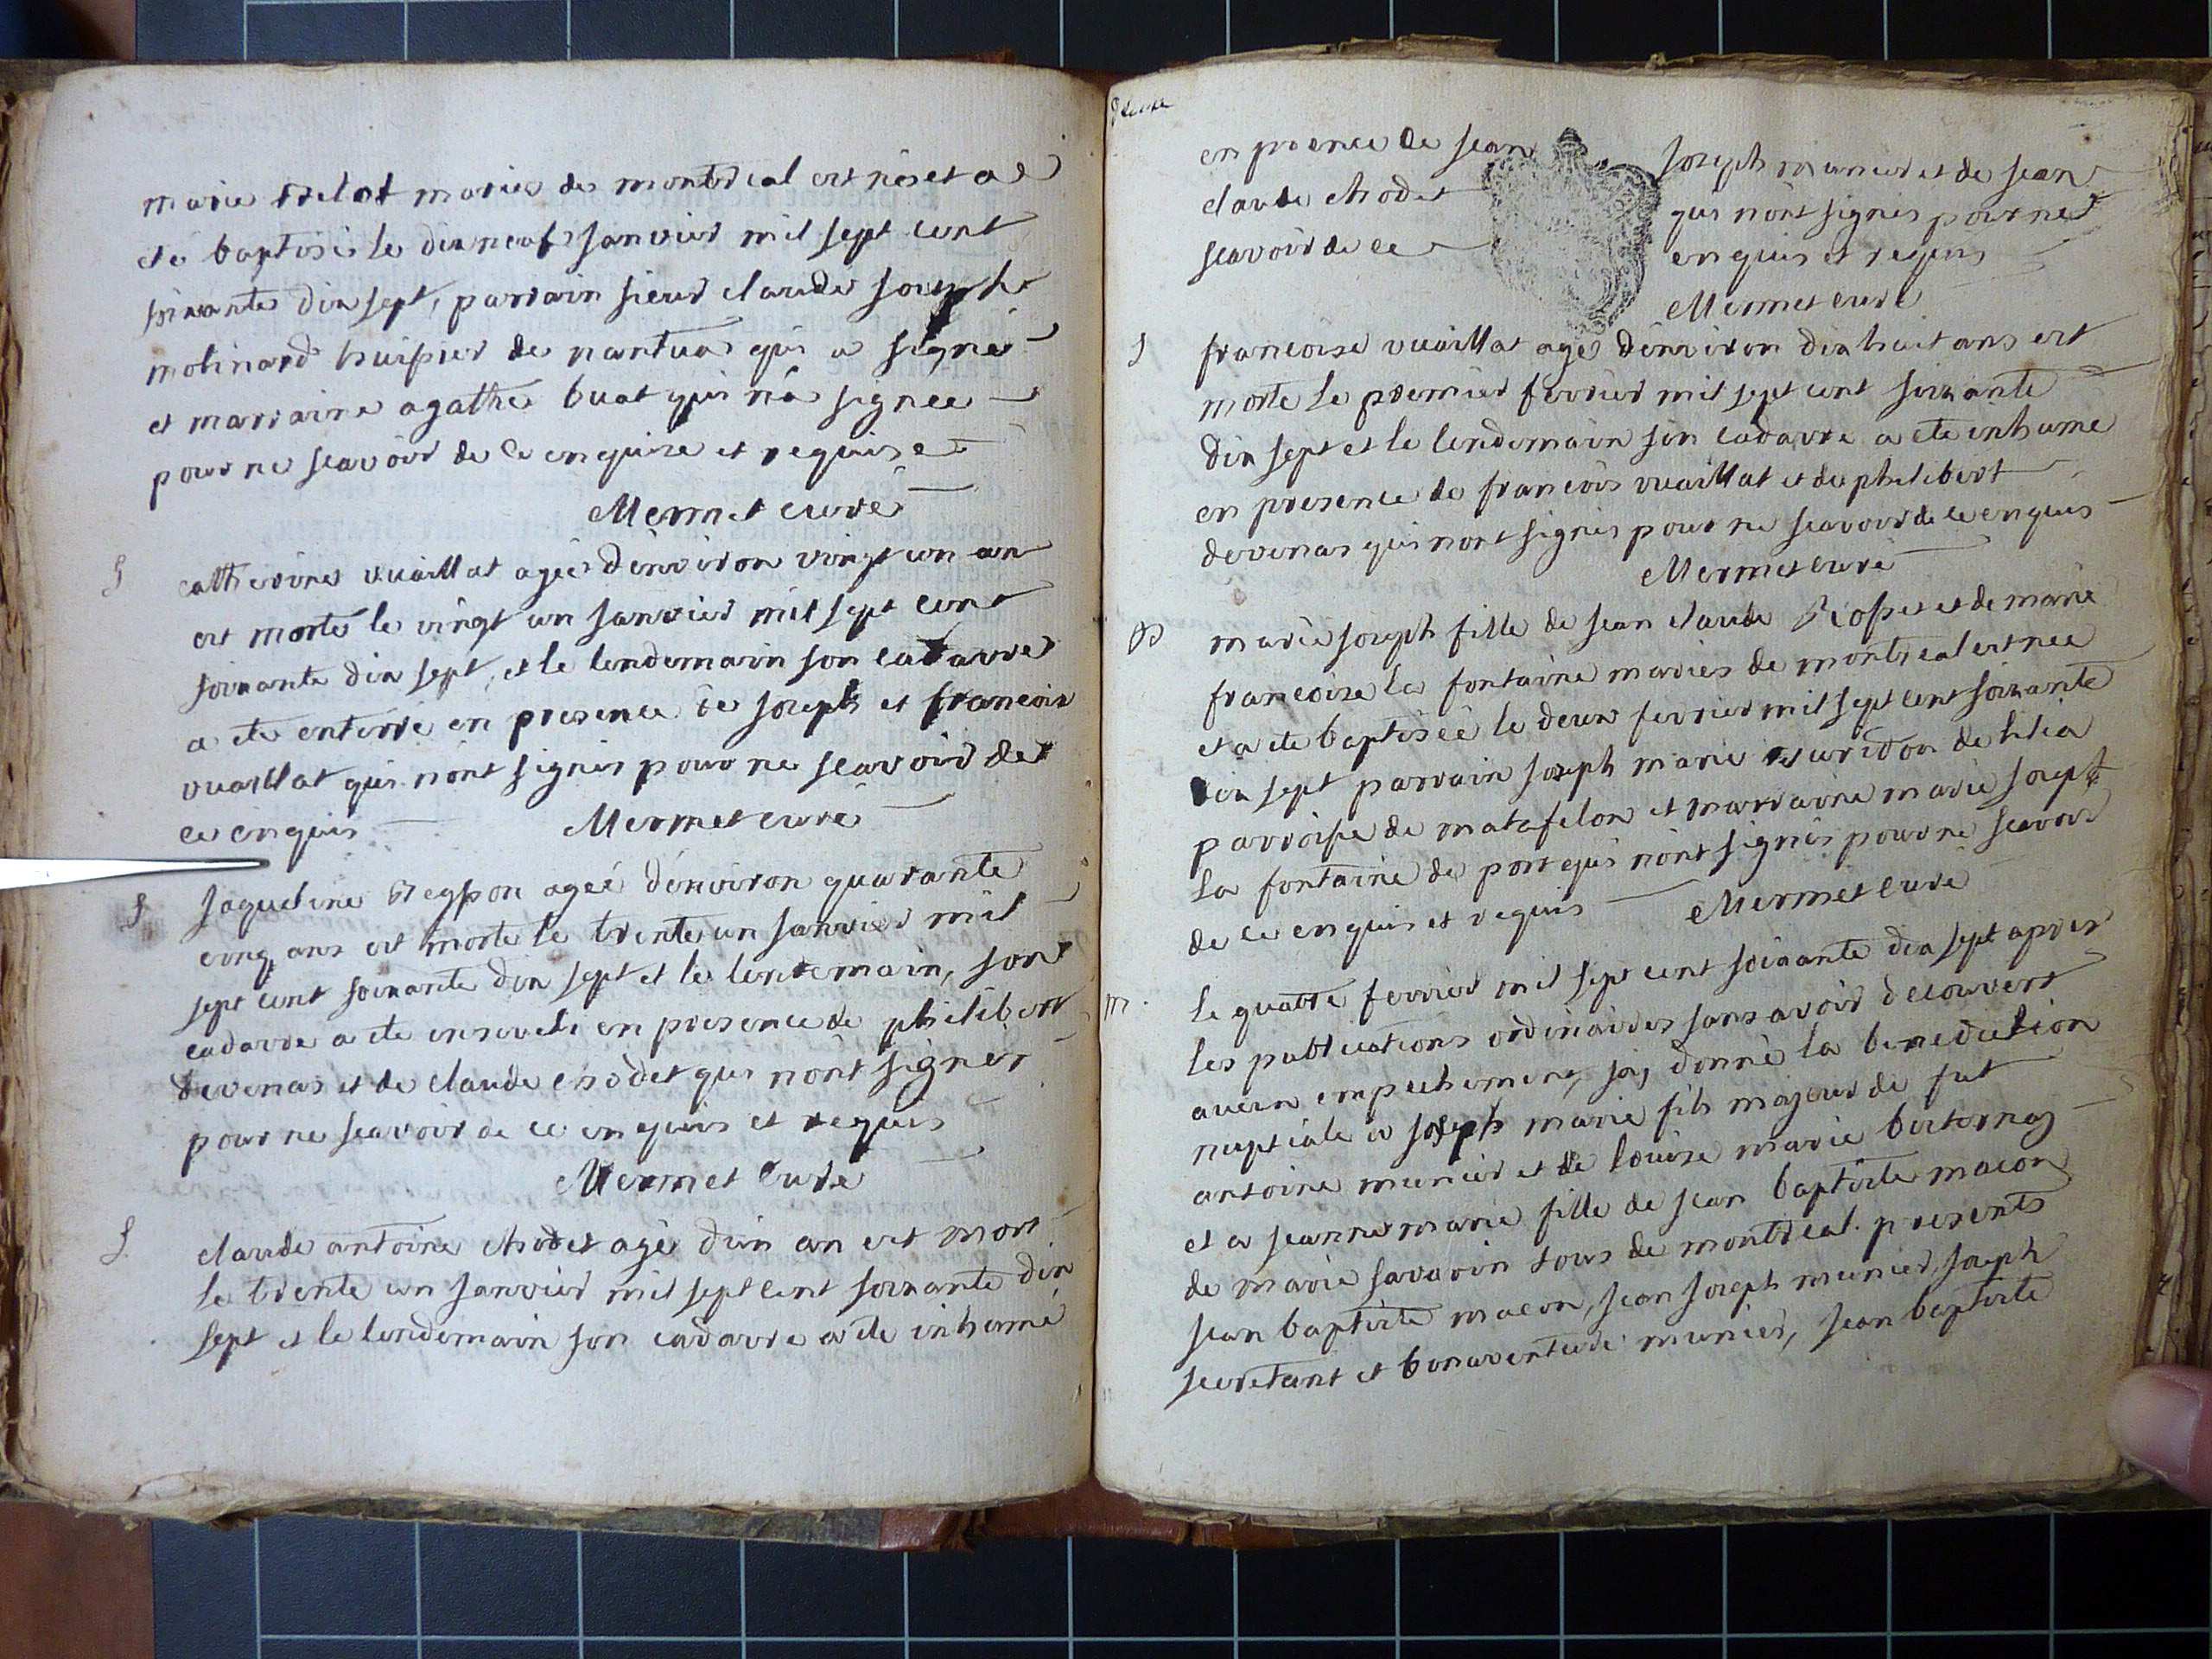 marie trelat mariés de montreal est nés et a
eté baptisé le dixneuf janvier mil sept cent
soixante dix sept, parrain sieur claude joseph
molinard huissier de nantua qui a signé
et marraine agathe buat qui n'a signée
pour ne scavoir de ce enquise et requise
Mermet curé
S catherine vuaillat agée d'environ vingt un an
est morte le vingt un janvier mil sept cent
soixante dix sept, et le lendemain son cadavre
a ete enterré en presence de joseph et francois
vuaillat qui n'ont signés pour ne scavoir de
ce enquis Mermet curé
S jaqueline agée d'environ quarante
cinq ans est morte le trente un janvier mil
sept cent soixante dix sept et le lendemain, son
cadavre a ete enseveli en presence de philibert
devenas et de claude chodet qui n'ont signés
pour ne scavoir de ce enquis et requis
Mermet curé
S claude antoine chodet agé d'un an est mort
le trente un janvier mil sept cent soixante dix
sept et le lendemain son cadavre a ete inhumé
en presence de jean joseph munier et de jean
claude chodet qui n'ont signés pour ne
scavoir de ce enquis et requis
Mermet curé
S francoise vuaillat agée d'environ dix huit ans est
morte le premier fevrier mil sept cent soixante
dix sept et le lendemain son cadavre a ete inhumé
en presence de francois vuaillat et de philibert
devenas qui n'ont signés pour ne scavoir de ce enquis
Mermet curé
B marie joseph fille de jean claude Rosset et de marie
francoise la fontaine mariés de montreal est née
et a ete baptisée le deux fevrier mil sept cent soixante
dix sept parrain joseph marie de
parroisse de matafelon et marraine marie joseph
la fontaine de port qui n'ont signés pour ne scavoir
de ce enquis et requis Mermet curé
m. le quatre fevrier mil sept cent soixante dix sept apres
les publications ordinaires sans avoir decouvert
aucun empechement, j'aj donné la benediction
nuptiale a joseph marie fils majeur de fut
antoine munier et de louise marie bertornaz
et a jeanne marie fille de jean baptiste macon
de marie savarin tous de montreal. presents
jean baptiste macon, jean joseph munier, joseph
secretant et bonaventure munier, jean baptiste